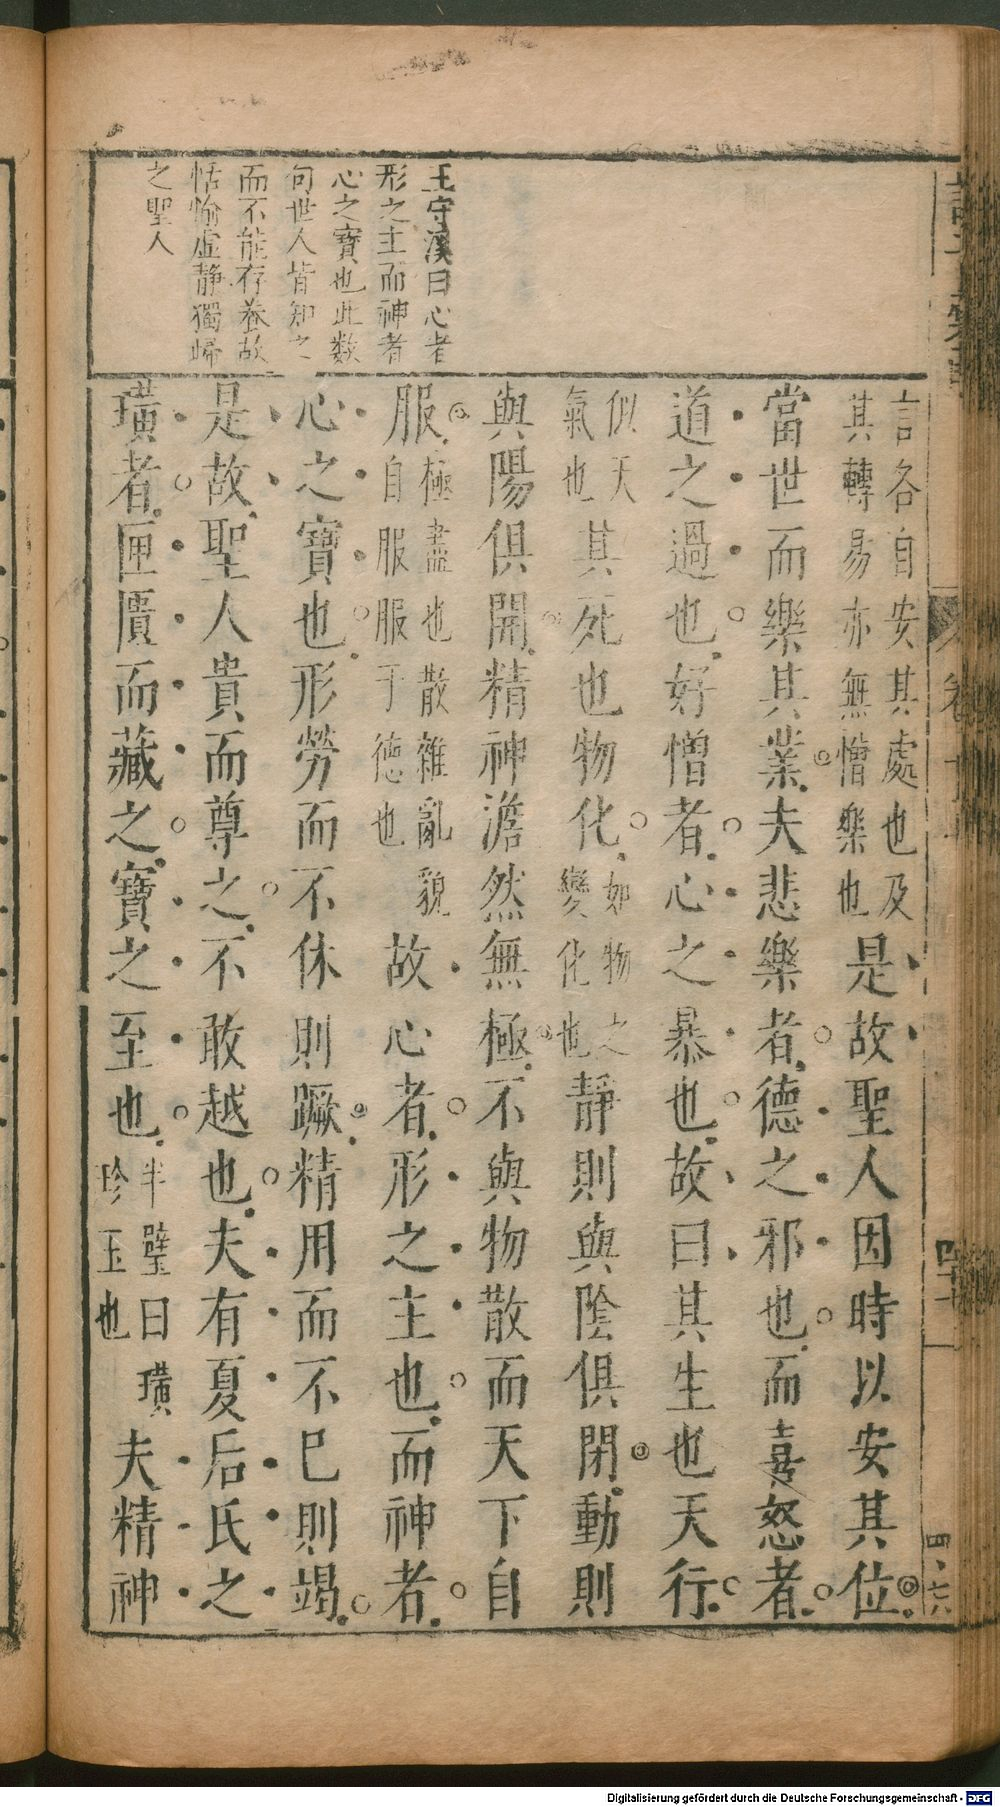 王守溪曰心者
形之主而神者
心之寶也此数
句世人皆知之
而不能存养故
恬愉虛静獨歸
之聖人
言各自安其處也及
其轉易亦無憎樂也
是故聖人因時以安其位
當世而樂其業夫悲樂者德之邪也而喜怒者
道之過也好憎者心之暴也故曰其生也天行
似天
氣也
其死也物化
如物之
變化也
靜則與陰俱閉動則
與陽俱開精神澹然無極不與物散而天下自
服
極盡也散雜亂貌
自服服于德也
故心者形之主也而神者
心之寶也形勞而不休則蹶精用而不巳則竭
是故聖人貴而尊之不敢越也夫有夏后氏之
璜者匣匱而藏之寶之至也
半璧曰璜
珍玉也
夫精神
四十
四·六
Digitalisierung gefördert durch die Deutsche Forschungsgemeinschaft - DFG